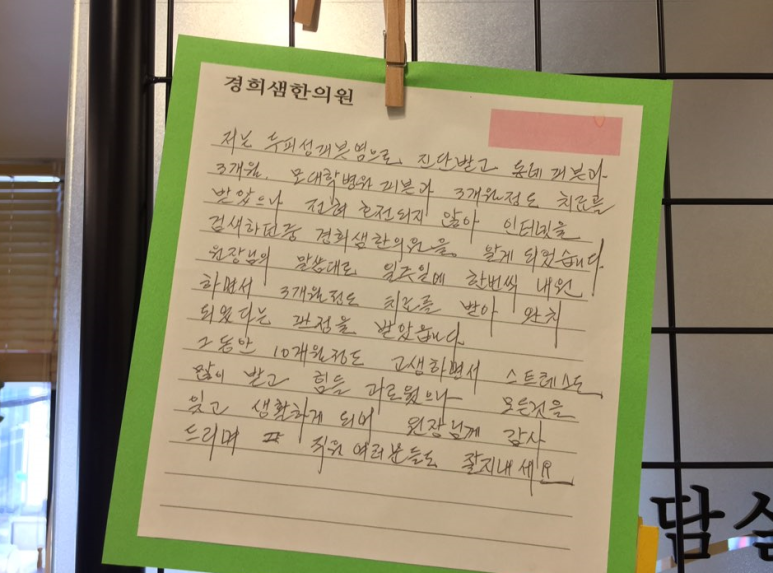 경희샘한의원
저는 두피성재봇염으로, 진단받고 동네 피부과
3개월. 모대학병원 피부과 3개월정도 치료를
받았으나 전혀 호전되지 않아 인터넷을
검색하던중 경희샘한의원을 알게 되었습니다.
원장님의 말씀대로 일주일에 한번씩 내원
하면서 3개월정도 치료를 받아 완치
되었다는 판정을 받았습니다
그동안 10개월정도 고생하면서 스트레스도
많이 받고 힘들 괴로웠으나 모든것을
잊고 생활하게 되어 원장님께 감사
드리며 직원 여러분들도 잘지내세요
담